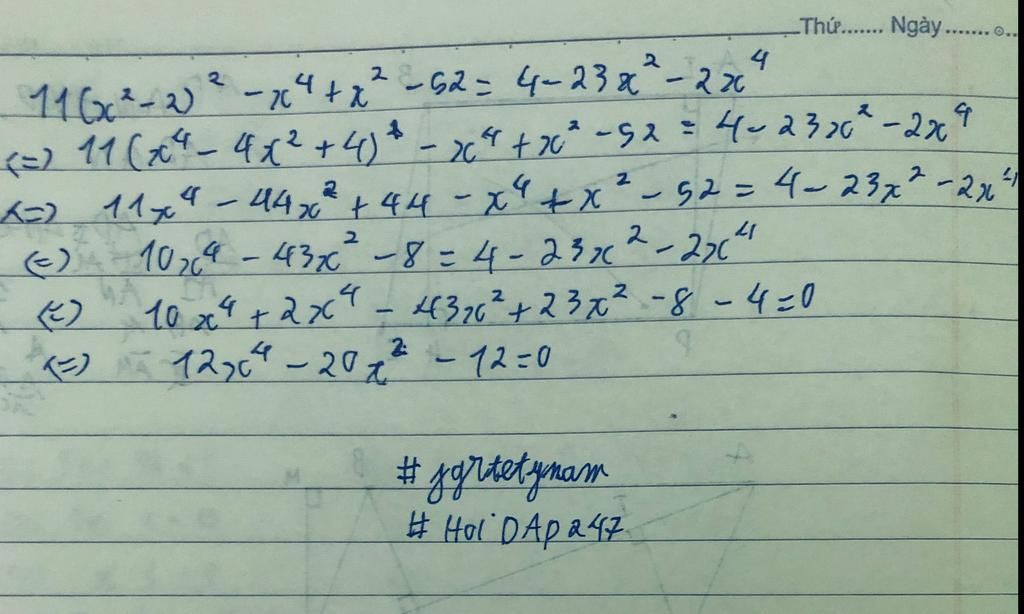 Thứ....... Ngày.......
11(x² - 2)² - x⁴ + x² - 52 = 4 - 23x² - 2x⁴
<=> 11(x⁴ - 4x² + 4) - x⁴ + x² - 52 = 4 - 23x² - 2x⁴
<=> 11x⁴ - 44x² + 44 - x⁴ + x² - 52 = 4 - 23x² - 2x⁴
<=> 10x⁴ - 43x² - 8 = 4 - 23x² - 2x⁴
<=> 10x⁴ + 2x⁴ - 43x² + 23x² - 8 - 4 = 0
<=> 12x⁴ - 20x² - 12 = 0
# jgrtetynam
# Hoi DAp 247